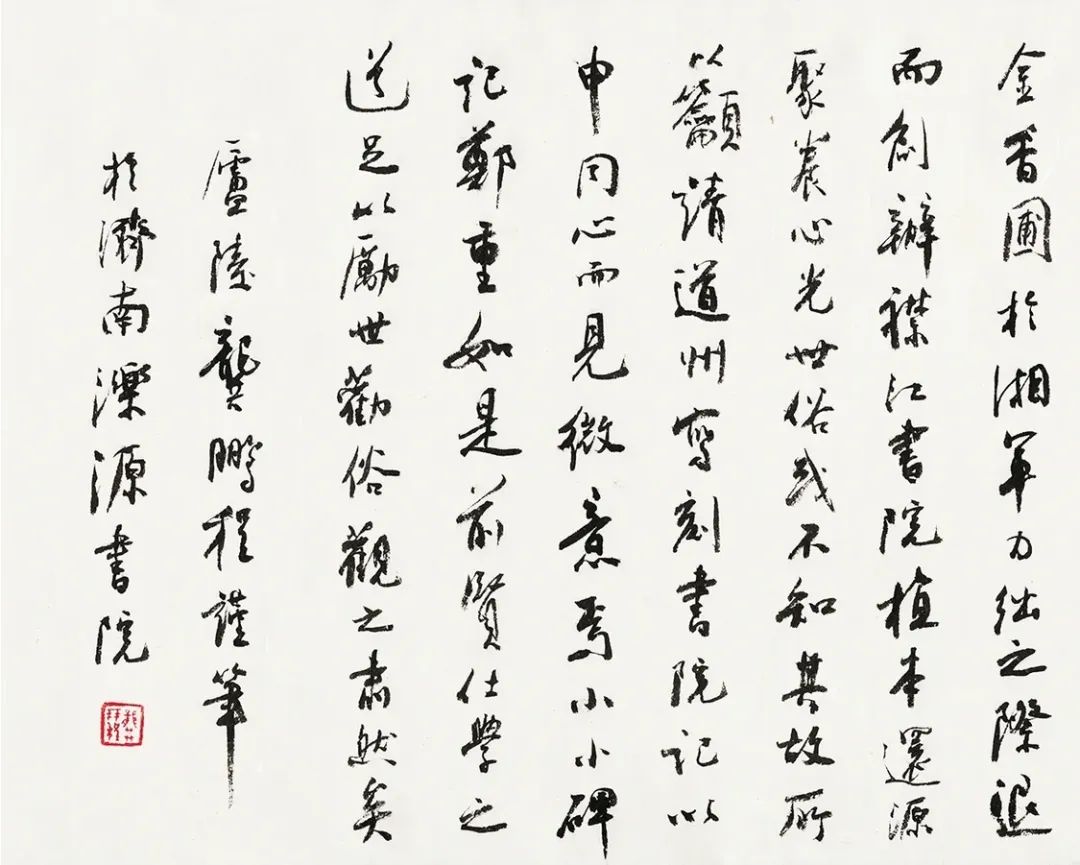 金香圃於湘軍力絀之際退
而創辦襟江書院植本還源
聚養心光世俗或不知其故所
以籲請道州寫刻書院記以
申同心而見微意焉小小碑
記鄭重如是前賢仕學之
道足以勵世勸俗觀之肅然矣
廬陵龔鵬程謹筆
於濟南濼源書院